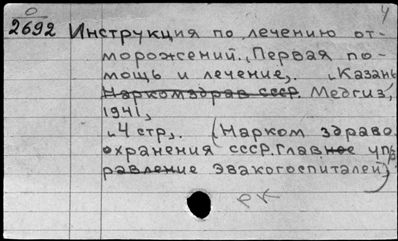 4
0
2692 Инструкция по лечению от-
морожений. Первая по-
мощь и лечение. Казань
Наркомздрав СССР. Медгиз,
1941,
4 стр. (Нарком здраво
охранения СССР. Главное уп
равление эвакогоспиталей)
РК